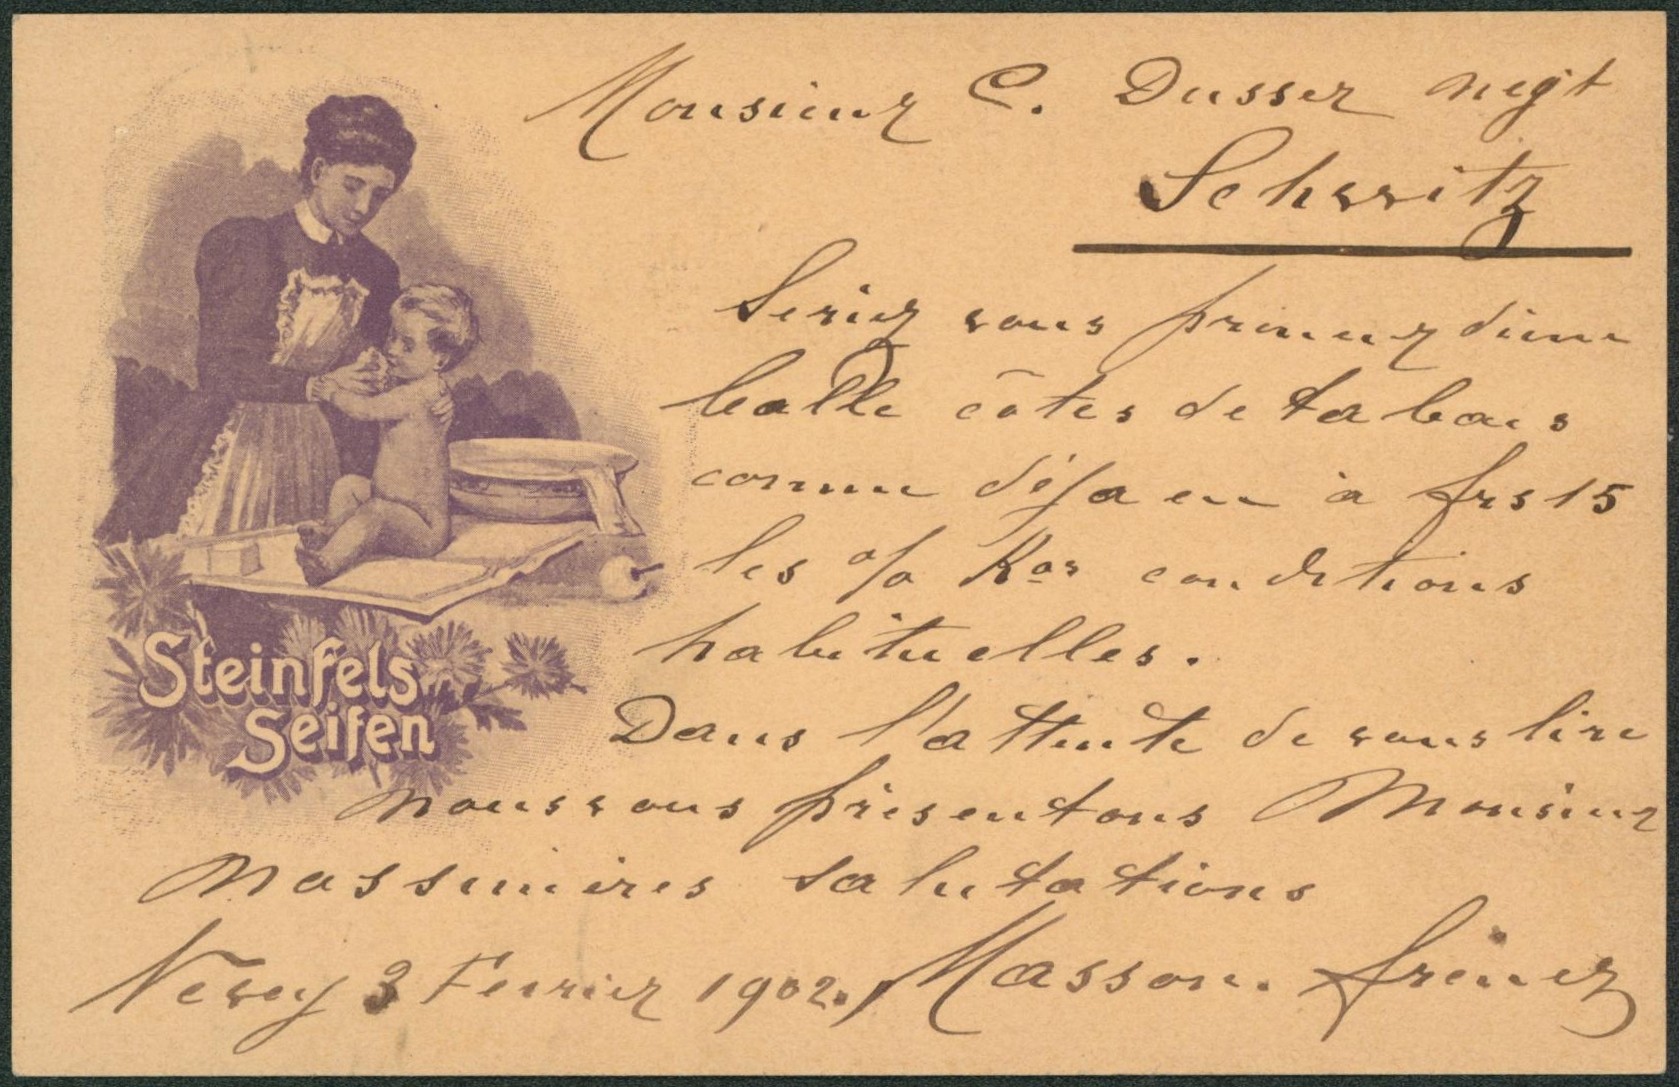 Monsieur C. Dusser negt
Schwitz
Seriez vous preneur d'une
balle côtes de tabacs
comme déja eu à frs 15
les % Kos conditions
habituelles.
Dans l'attente de vous lire
nous vous présentons Monsieur
nos sincères salutations
Vevey 3 Fevrier 1902. Masson.
Steinfels
Seifen